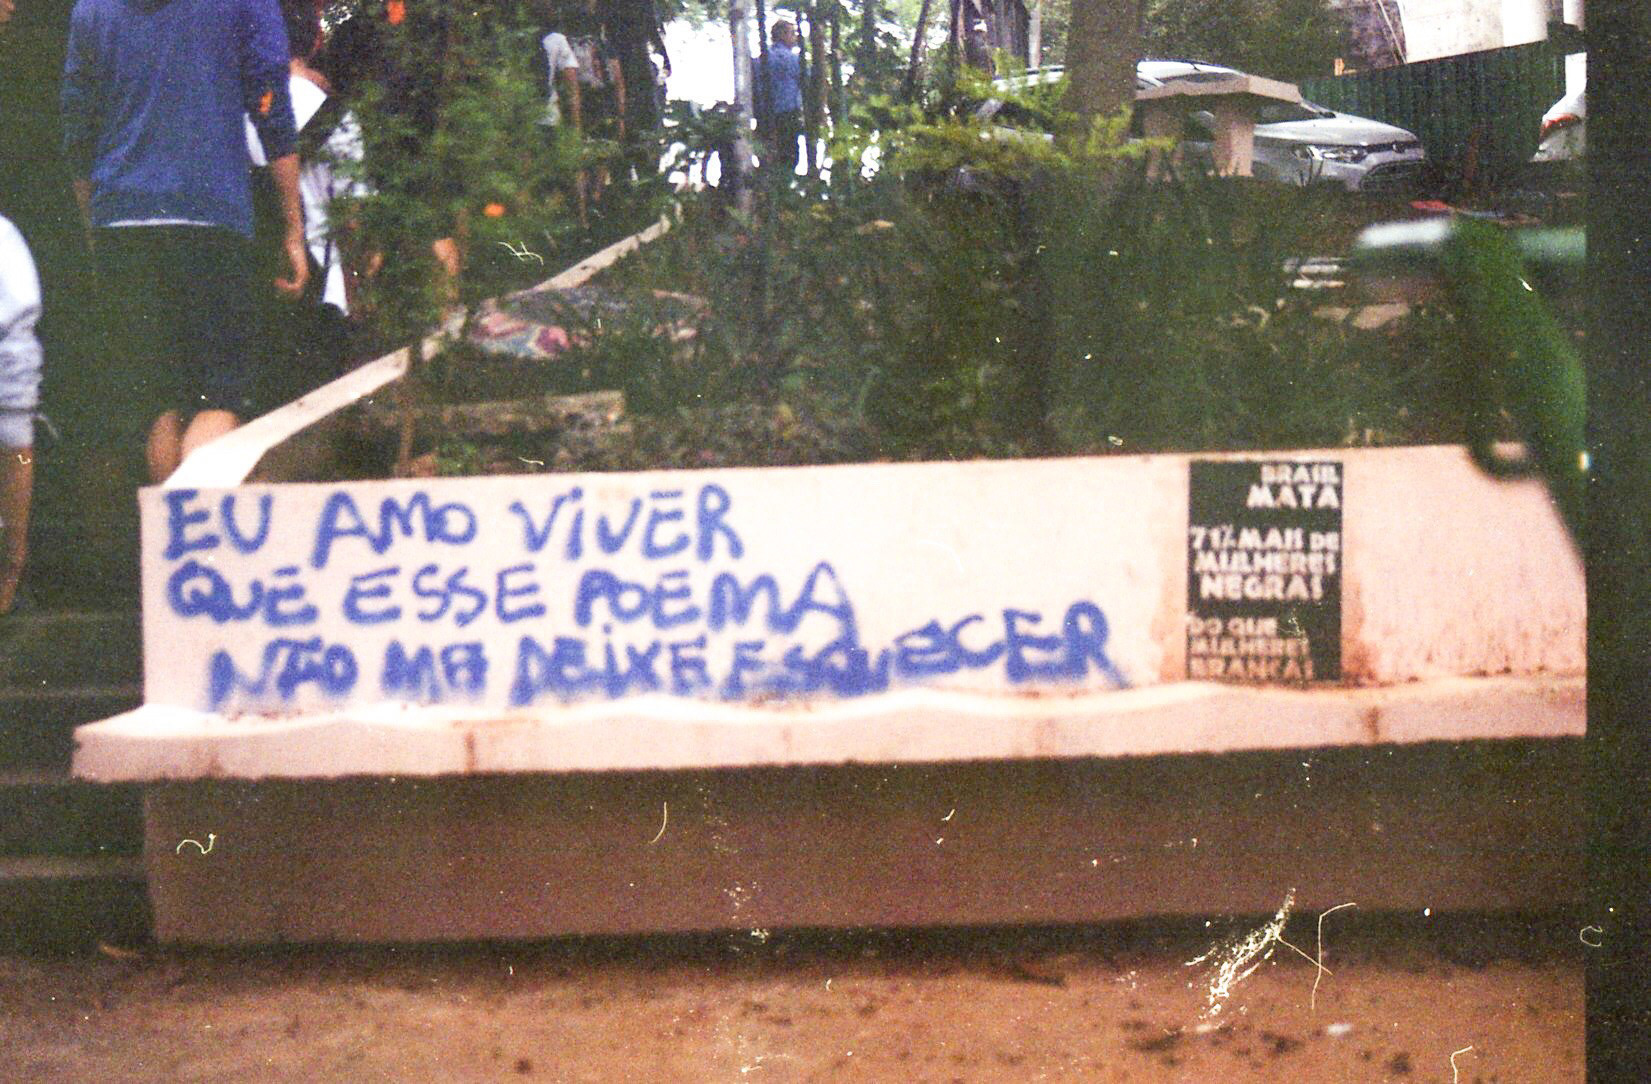 EU AMO VIVER
QUE ESSE POEMA
NÃO MA DEIXE ESQUECER
BRASIL
MATA
71% MAIS DE
MULHERES
NEGRAS
DO QUE
MULHERES
BRANCAS